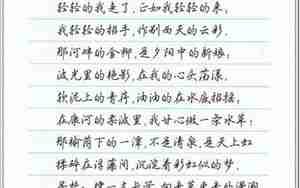 轻轻的我走了,正如我轻轻的来;
轻轻的招手,作别西天的云彩。
那河畔的金柳,是夕阳中的新娘;
波光里的艳影,在我的心头荡漾。
软泥上的青荇,油油的在水底招摇;
在康河的柔波里,我甘心做一条水草;
那榆荫下的一潭,不是清泉,是天上虹
揉碎在浮藻间,沉淀着彩虹似的梦。